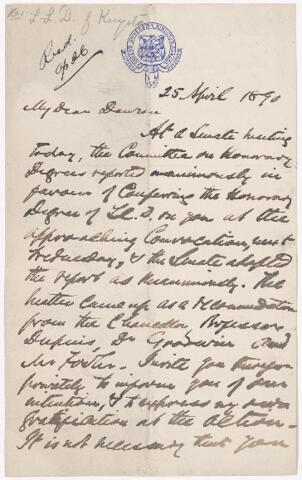 Re LL.D. of Kingston
Recd.
25 April 1890
My dear Dawson
At a Senate meeting
today, the Committee on Honorary
Degrees reported unanimously in
favour of Conferring the Honorary
Degree of LL.D. on you at the
approaching Convocation, next
Wednesday, & the Senate adopted
the report as unanimously. The
matter came up as a recommendation
from the Chancellor, Professors
Dupuis, Dr Goodwin and
Mr Foster. I write you
privately to inform you of our
intention, & to express my own
gratification at the action.
It is not necessary that you